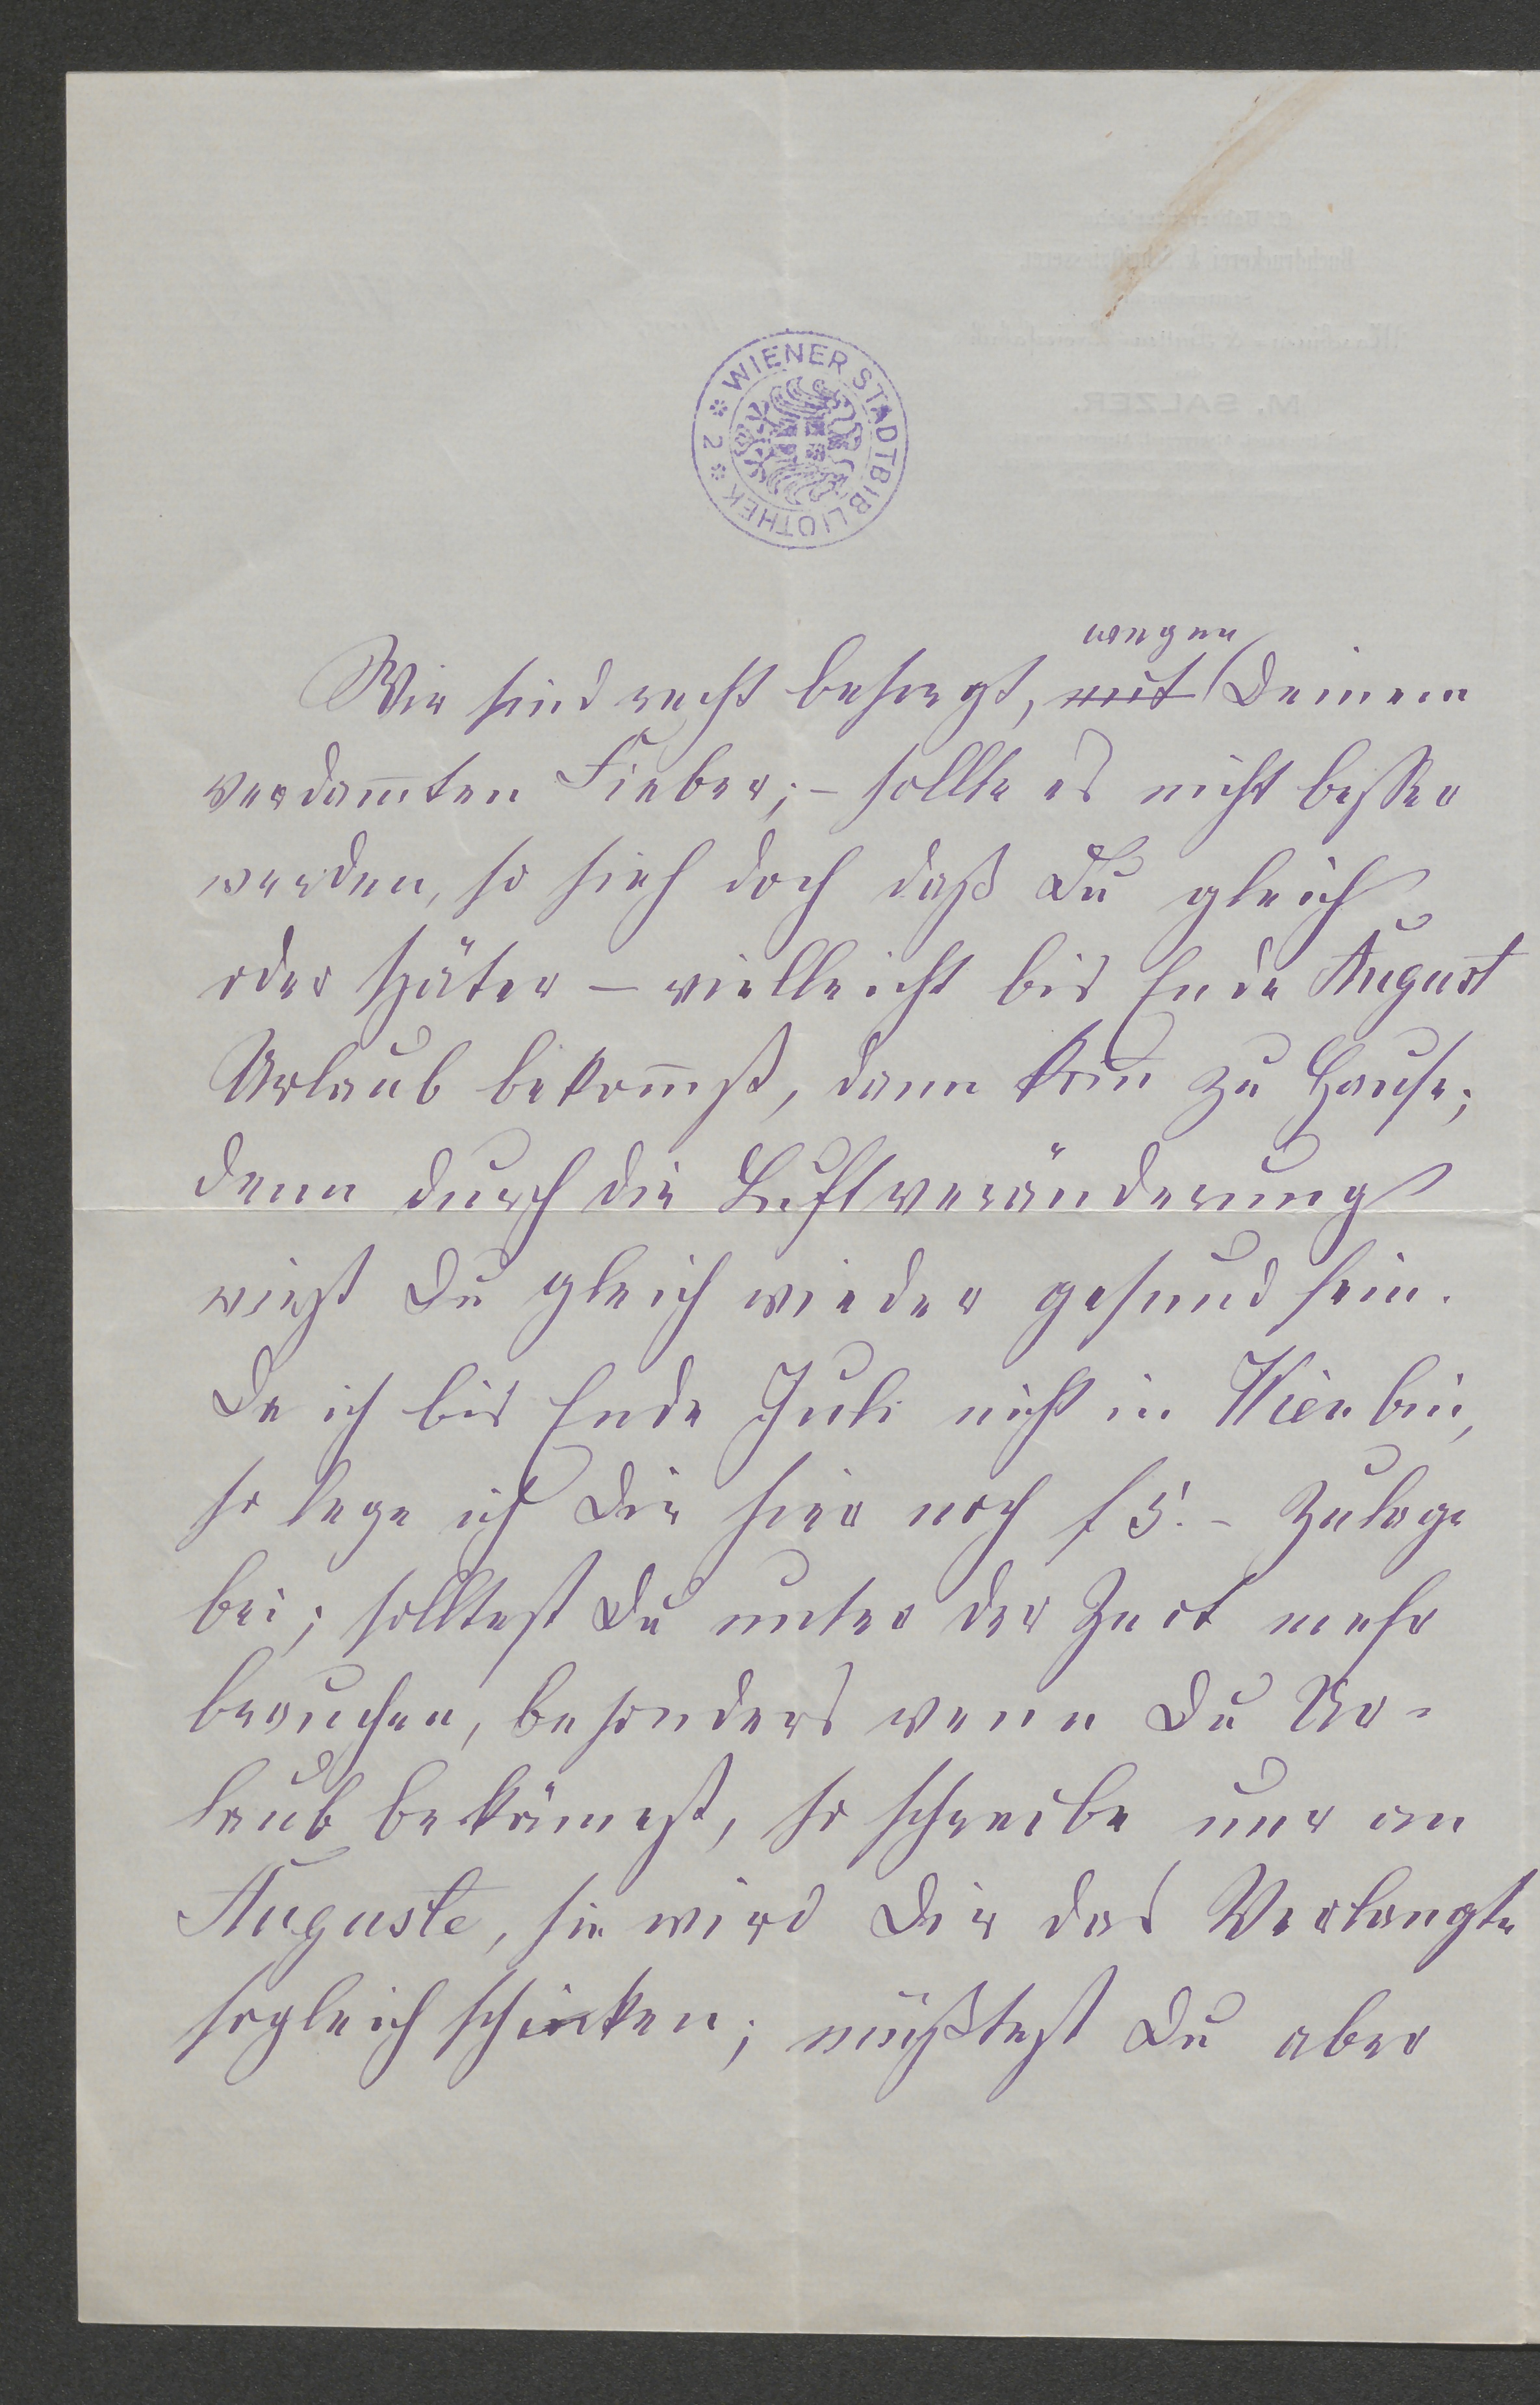 WIENER STADTBIBLIOTHEK 2
M. SALZER.
wegen
Wir sind recht besorgt, mit Deinem
verdam̅ten Fieber; – sollte es nicht besser
werden, so sieh doch daß Du gleich
oder später – vielleicht bis Ende August
Urlaub bekom̅st, dann kom̅ zu Hause;
denn durch die Luftveränderung
wirst Du gleich wieder gesund sein.
Da ich bis Ende Juli nicht in Wien bin,
so lege ich Dir hier noch f 5.– Zulage
bei; solltest Du unter der Zeit mehr
brauchen, besonders wenn Du Ur-
laub bekämest, so schreibe nur an
Auguste, sie wird Dir das Verlangte
sogleich schicken; müßtest Du aber